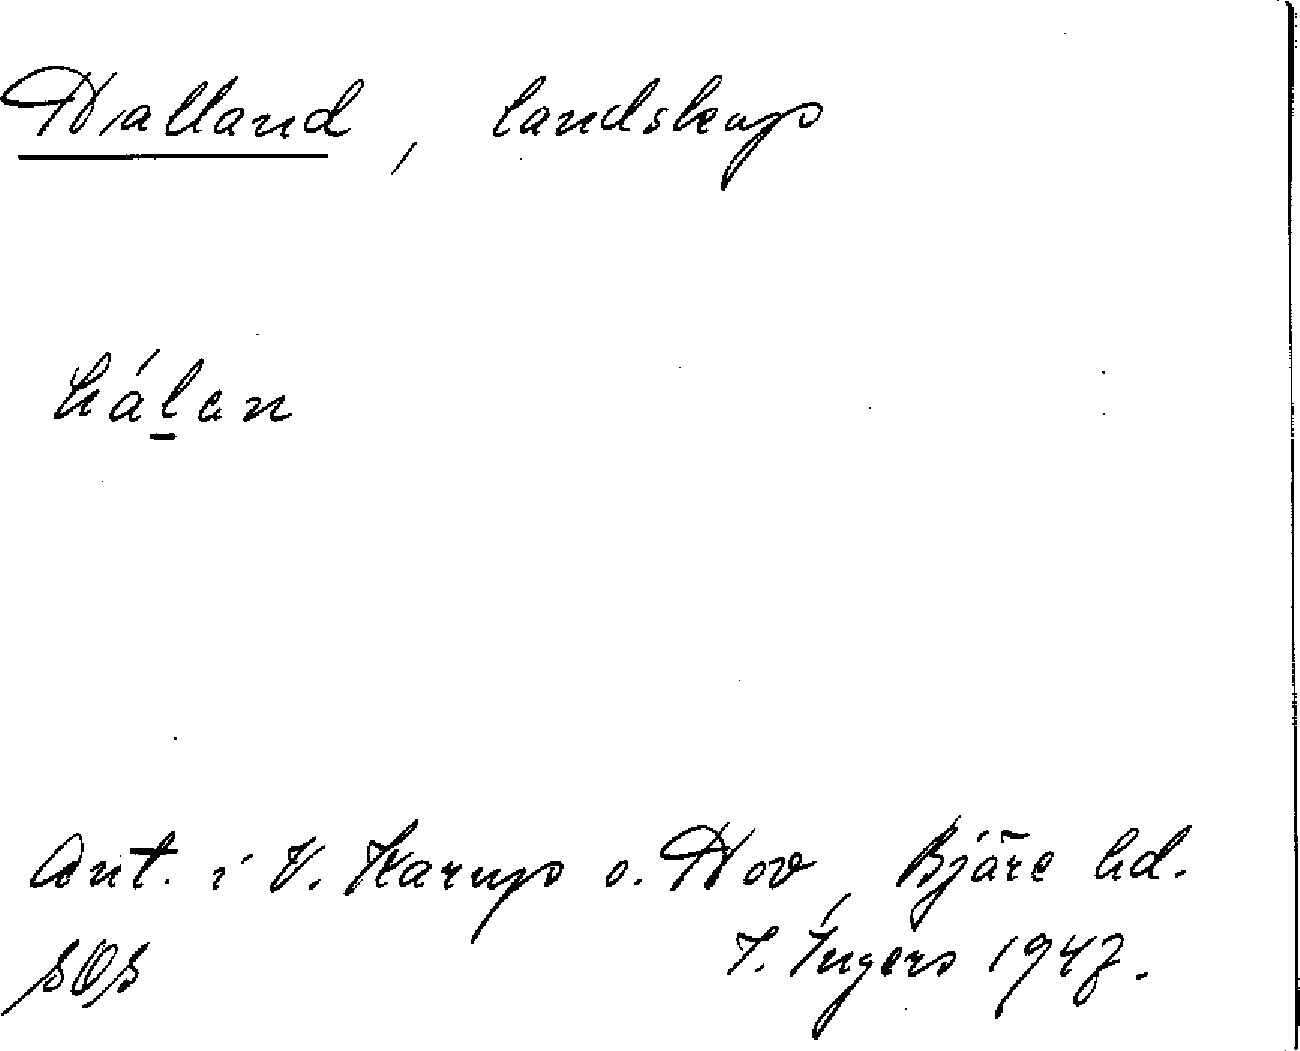 Halland, landskap
hálan
Ant. i V. Karup o. Hov, Bjäre hd.
SOS I. Ingers 1947.